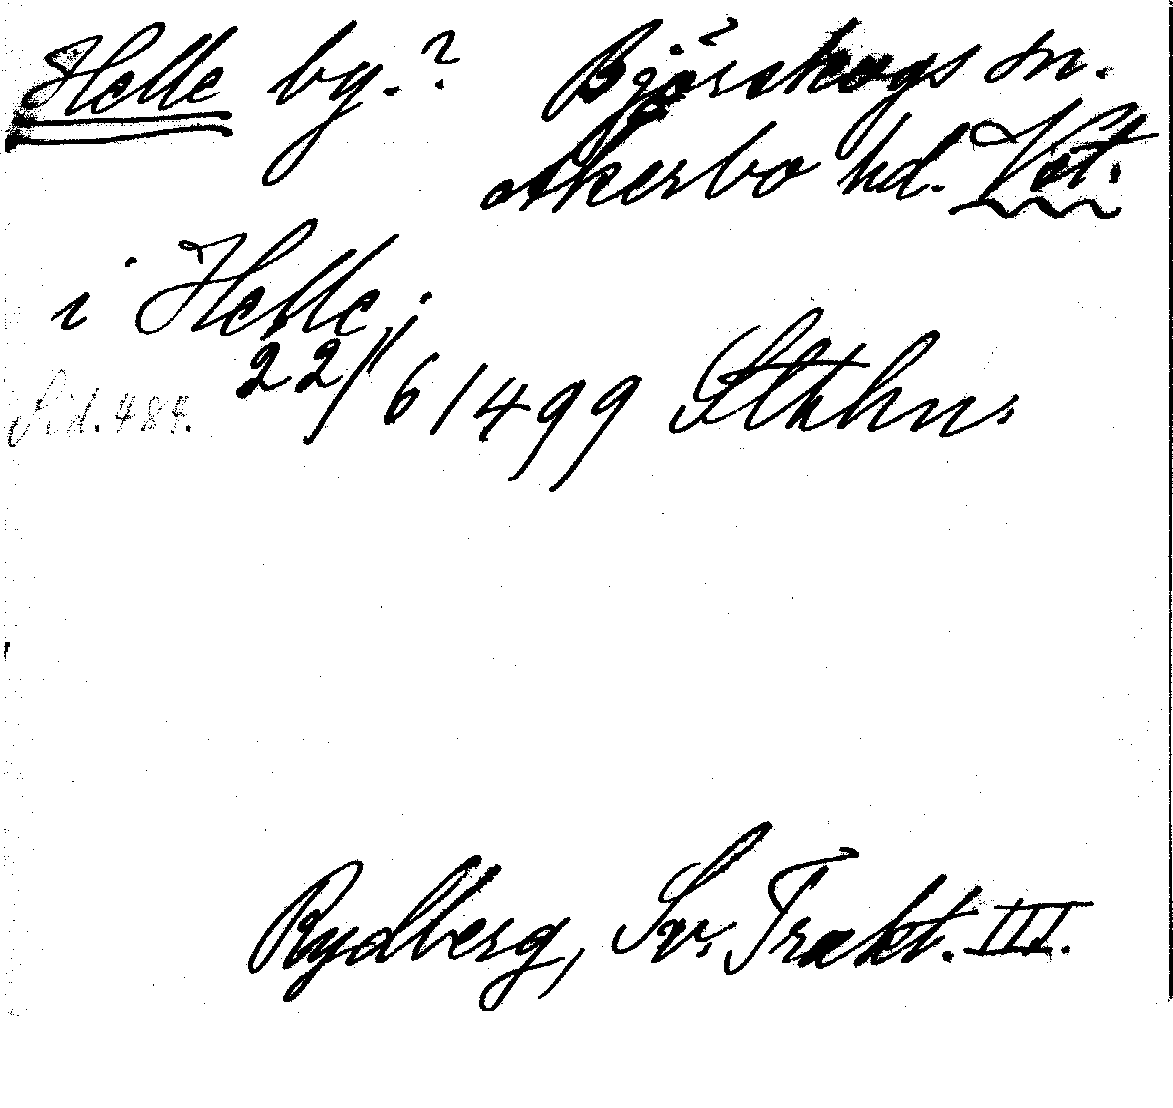 Helle by.? Björskogs sn.
Akerbo hd. Vst.
i Helle;
22/6 1499 Sthhns
Sid. 484.
Rydberg, Sv. Trakt. III.